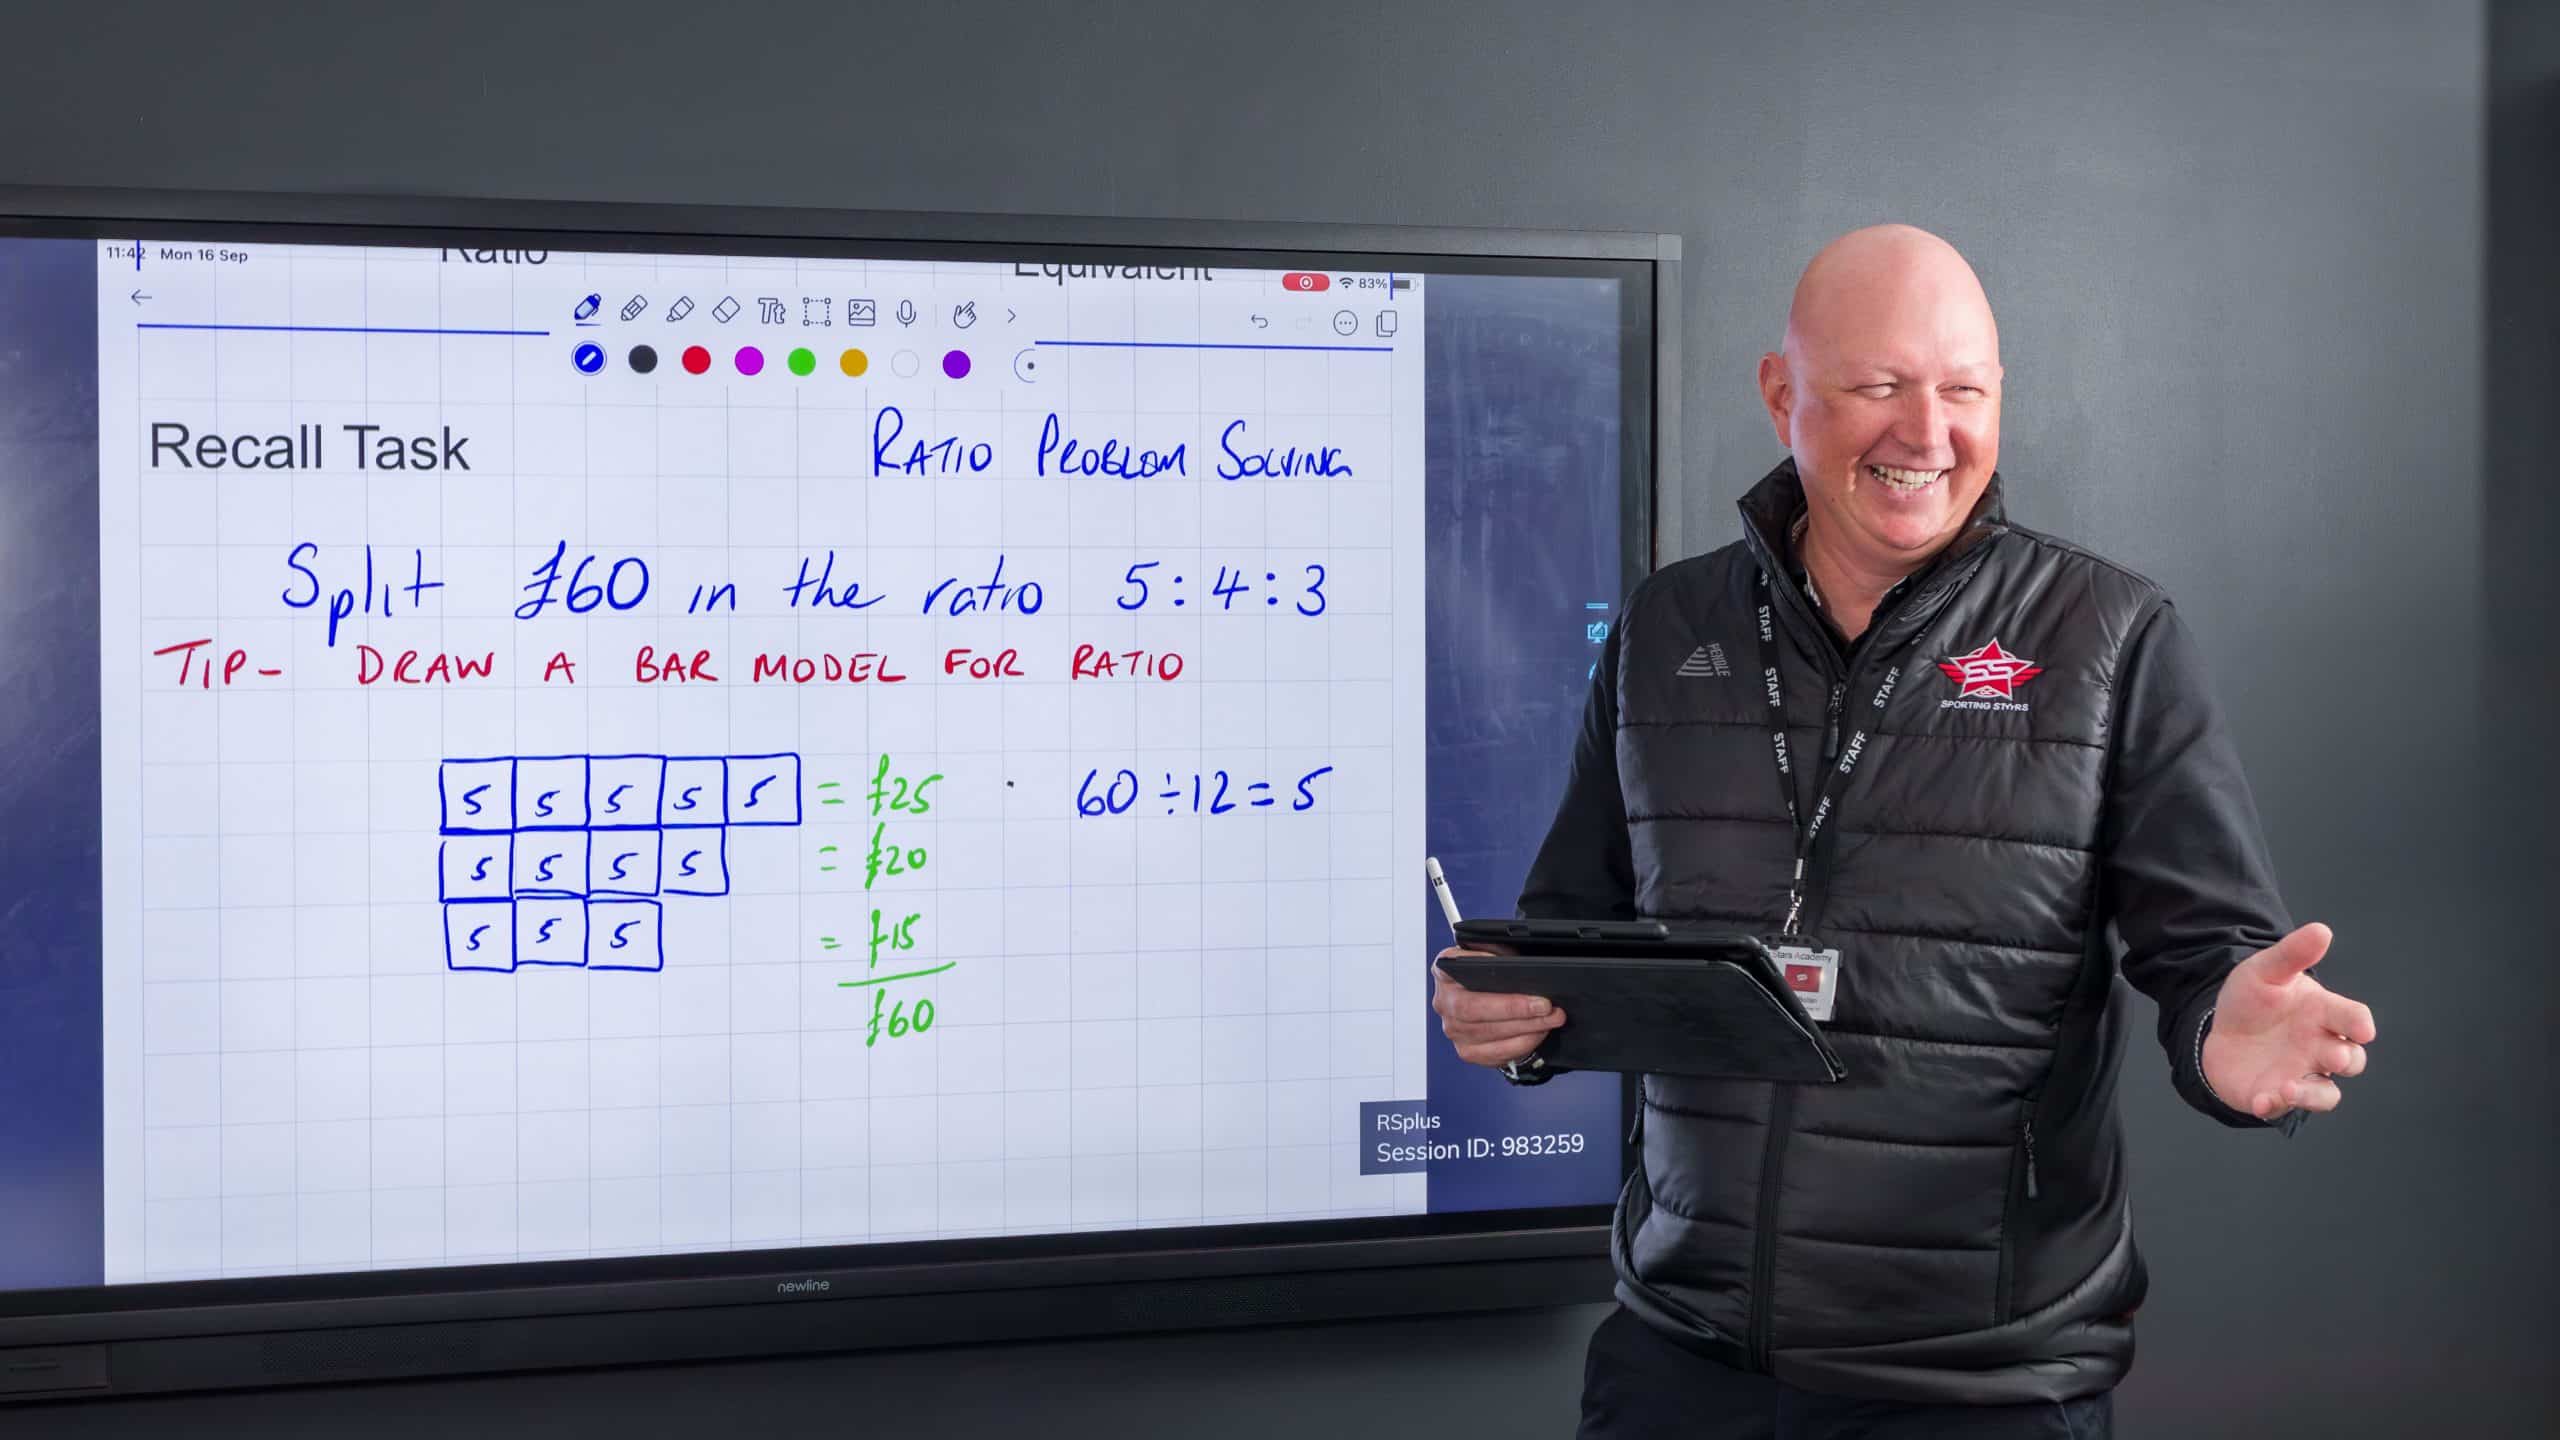 11:42 Mon 16 Sep
Ratio
Equivalent
83%
Tt
Recall Task
RATIO PROBLEM SOLVING
Split £60 in the ratio 5:4:3
TIP- DRAW A BAR MODEL FOR RATIO
5 5 5 5 5 = £25 60÷12=5
5 5 5 5 = £20
5 5 5 = £15
£60
RSplus
Session ID: 983259
newline
PENDLE
SS
SPORTING STARS
STAFF
STAFF
STAFF
STAFF
STAFF
STAFF
Stars Academy